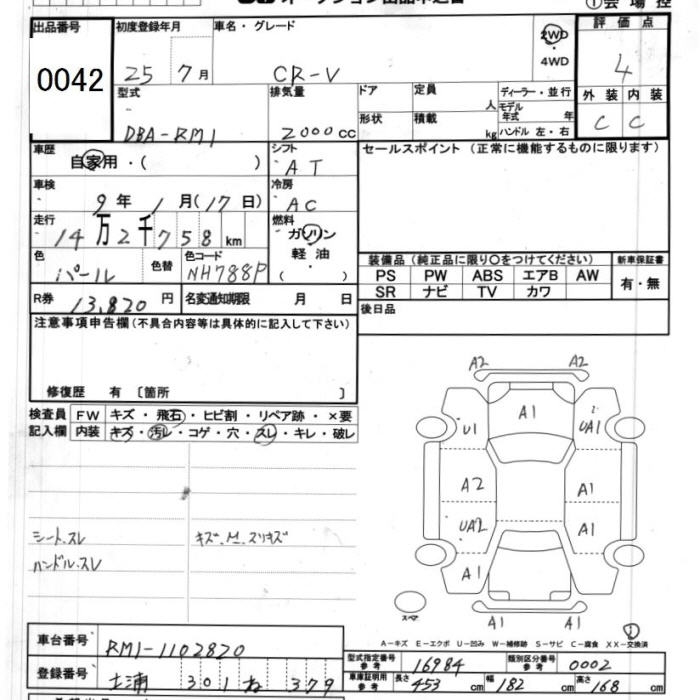 出品番号 初度登録年月 車名・グレード 2WD 評価点
0042 25 7月 CR-V ・4WD 4
型式 排気量 ドア 定員 人 ディーラー・並行 外装 内装
DBA-RM1 2000cc 形状 積載 kg モデル年式 年 ハンドル 左・右 C C
車歴 シフト セールスポイント (正常に機能するものに限ります)
自家用・( ) AT
車検 冷房
9年 1月(17日) AC
走行 燃料
14万2千758km ガソリン・軽油( )
色 色替 色コード 装備品 (純正品に限り○をつけてください) 新車保証書
パール NH788P PS PW ABS エアB AW 有・無
R券 13,820円 名変通知期限 月 日 SR ナビ TV カワ
注意事項申告欄(不具合内容等は具体的に記入して下さい) 後日品
修復歴 有 〔箇所 〕
検査員 FW キズ・飛石・ヒビ割・リペア跡・×要
記入欄 内装 キズ・汚レ・コゲ・穴・スレ・キレ・破レ
A2 A2
A1
U1 UA1
A2 A1
UA2 A1
A1
A1 A1
スペア
シート.スレ キズ.M.スリキズ
ハンドル.スレ
A-キズ E-エクボ U-凹み W-補修跡 S-サビ C-腐食 XX-交換済
車台番号 RM1-1102820
型式指定番号 参考 16984 類別区分番号 参考 0002
登録番号 土浦 301 ね 379
車庫証明用 参考 長さ 453cm 幅 182cm 高さ 168cm